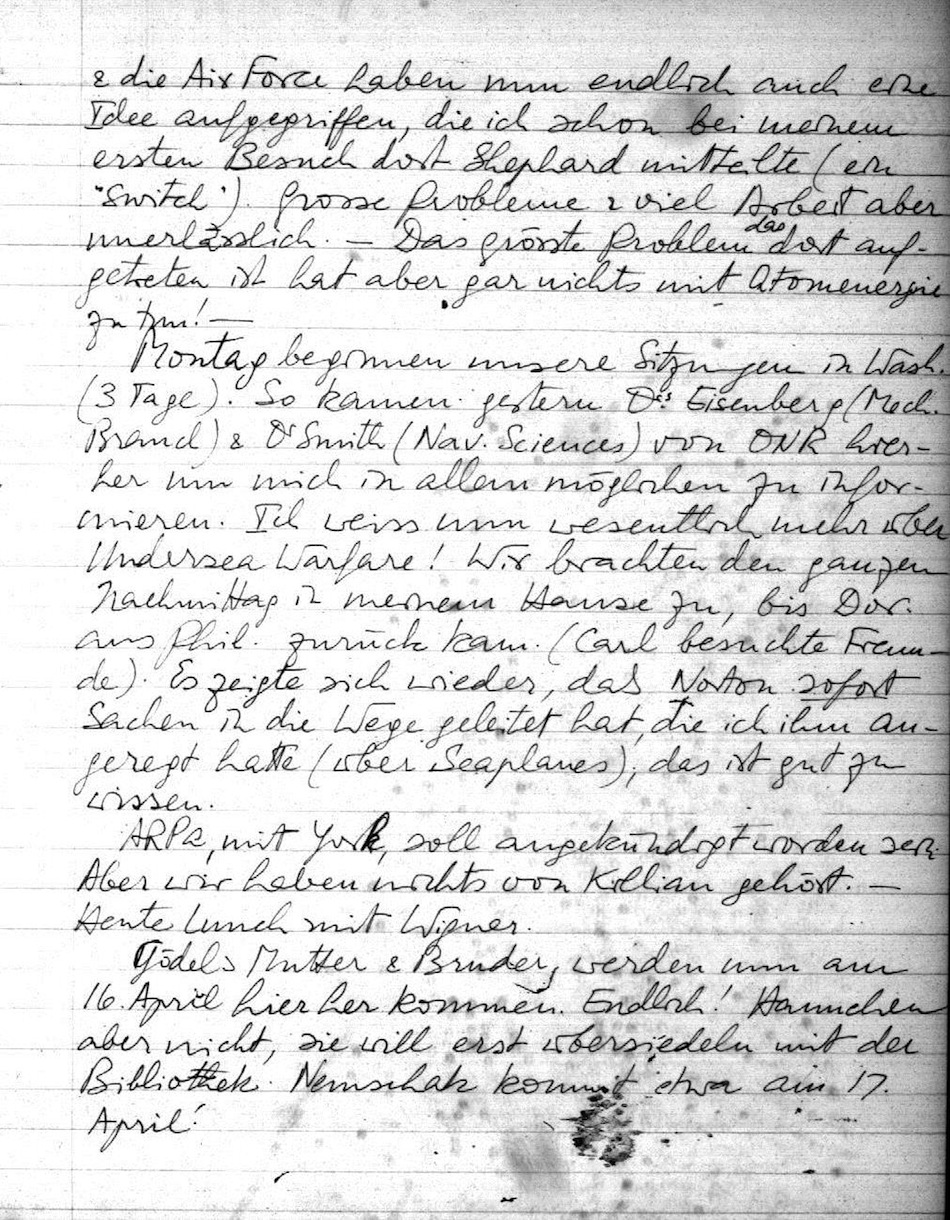 & die Air Force haben nun endlich auch eine
Idee aufgegriffen, die ich schon bei meinem
ersten Besuch dort Shephard mitteilte (ein
"Switch"). Grosse Probleme & viel Arbeit aber
unerlässlich. – Das grösste Problem das dort auf-
getreten ist hat aber gar nichts mit Atomenergie
zu tun! –
Montag beginnen unsere Sitzungen in Wash.
(3 Tage). So kamen gestern Drs Eisenberg (Mech.
Branch) & Dr Smith (Nav. Sciences) von ONR hier-
her um mich in allem möglichen zu infor-
mieren. Ich weiss nun wesentlich mehr über
Undersea Warfare! Wir brachten den ganzen
Nachmittag in meinem Hause zu, bis Dor.
aus Phil. zurück kam. (Carl besuchte Freun-
de). Es zeigte sich wieder, das Norton sofort
Sachen in die Wege geleitet hat, die ich ihm an-
geregt hatte (über Seaplanes); das ist gut zu
wissen.
ARPA, mit York, soll angekündigt worden sein.
Aber wir haben nichts von Killian gehört. –
Heute Lunch mit Wigner.
Gödels Mutter & Bruder, werden nun am
16. April hierher kommen. Endlich! Hannchen
aber nicht, sie will erst übersiedeln mit der
Bibliothek. Nemschak kommt etwa am 17.
April!